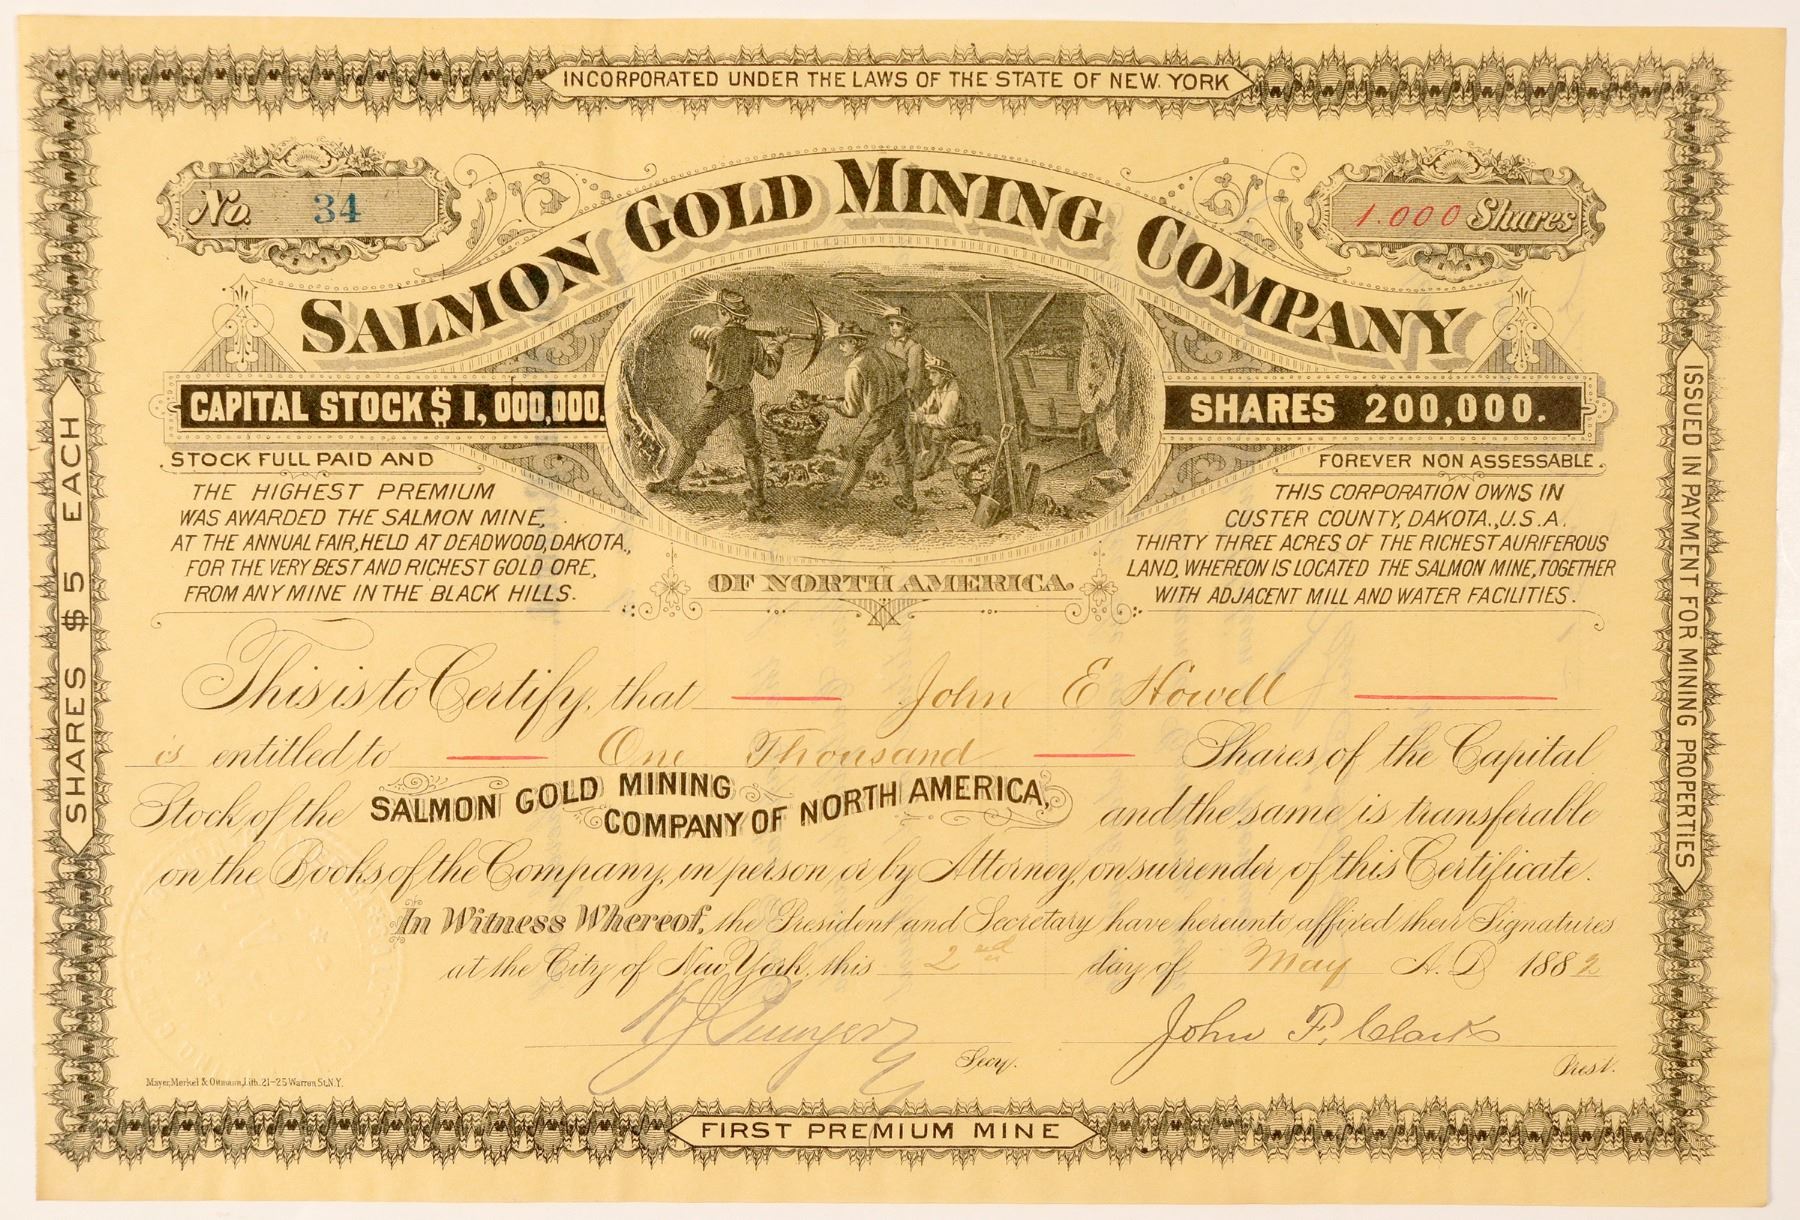 INCORPORATED UNDER THE LAWS OF THE STATE OF NEW YORK
No. 34
1.000 Shares
SALMON GOLD MINING COMPANY
CAPITAL STOCK $ 1,000,000.
SHARES 200,000.
STOCK FULL PAID AND
FOREVER NON ASSESSABLE.
THE HIGHEST PREMIUM
WAS AWARDED THE SALMON MINE,
AT THE ANNUAL FAIR, HELD AT DEADWOOD, DAKOTA.,
FOR THE VERY BEST AND RICHEST GOLD ORE,
FROM ANY MINE IN THE BLACK HILLS.
THIS CORPORATION OWNS IN
CUSTER COUNTY, DAKOTA., U.S.A.
THIRTY THREE ACRES OF THE RICHEST AURIFEROUS
LAND, WHEREON IS LOCATED THE SALMON MINE, TOGETHER
WITH ADJACENT MILL AND WATER FACILITIES.
OF NORTH AMERICA.
SHARES $5 EACH
ISSUED IN PAYMENT FOR MINING PROPERTIES
This is to Certify, that John E Howell
is entitled to One Thousand Shares of the Capital
Stock of the SALMON GOLD MINING COMPANY OF NORTH AMERICA, and the same is transferable
on the Books of the Company, in person or by Attorney, on surrender of this Certificate.
In Witness Whereof, the President and Secretary have hereunto affixed their Signatures
at the City of New York, this 2nd day of May A.D 1882
Secy.
John F. Clark
Prest.
Mayer, Merkel & Ottmann, Lith. 21-25 Warren St. N.Y.
FIRST PREMIUM MINE